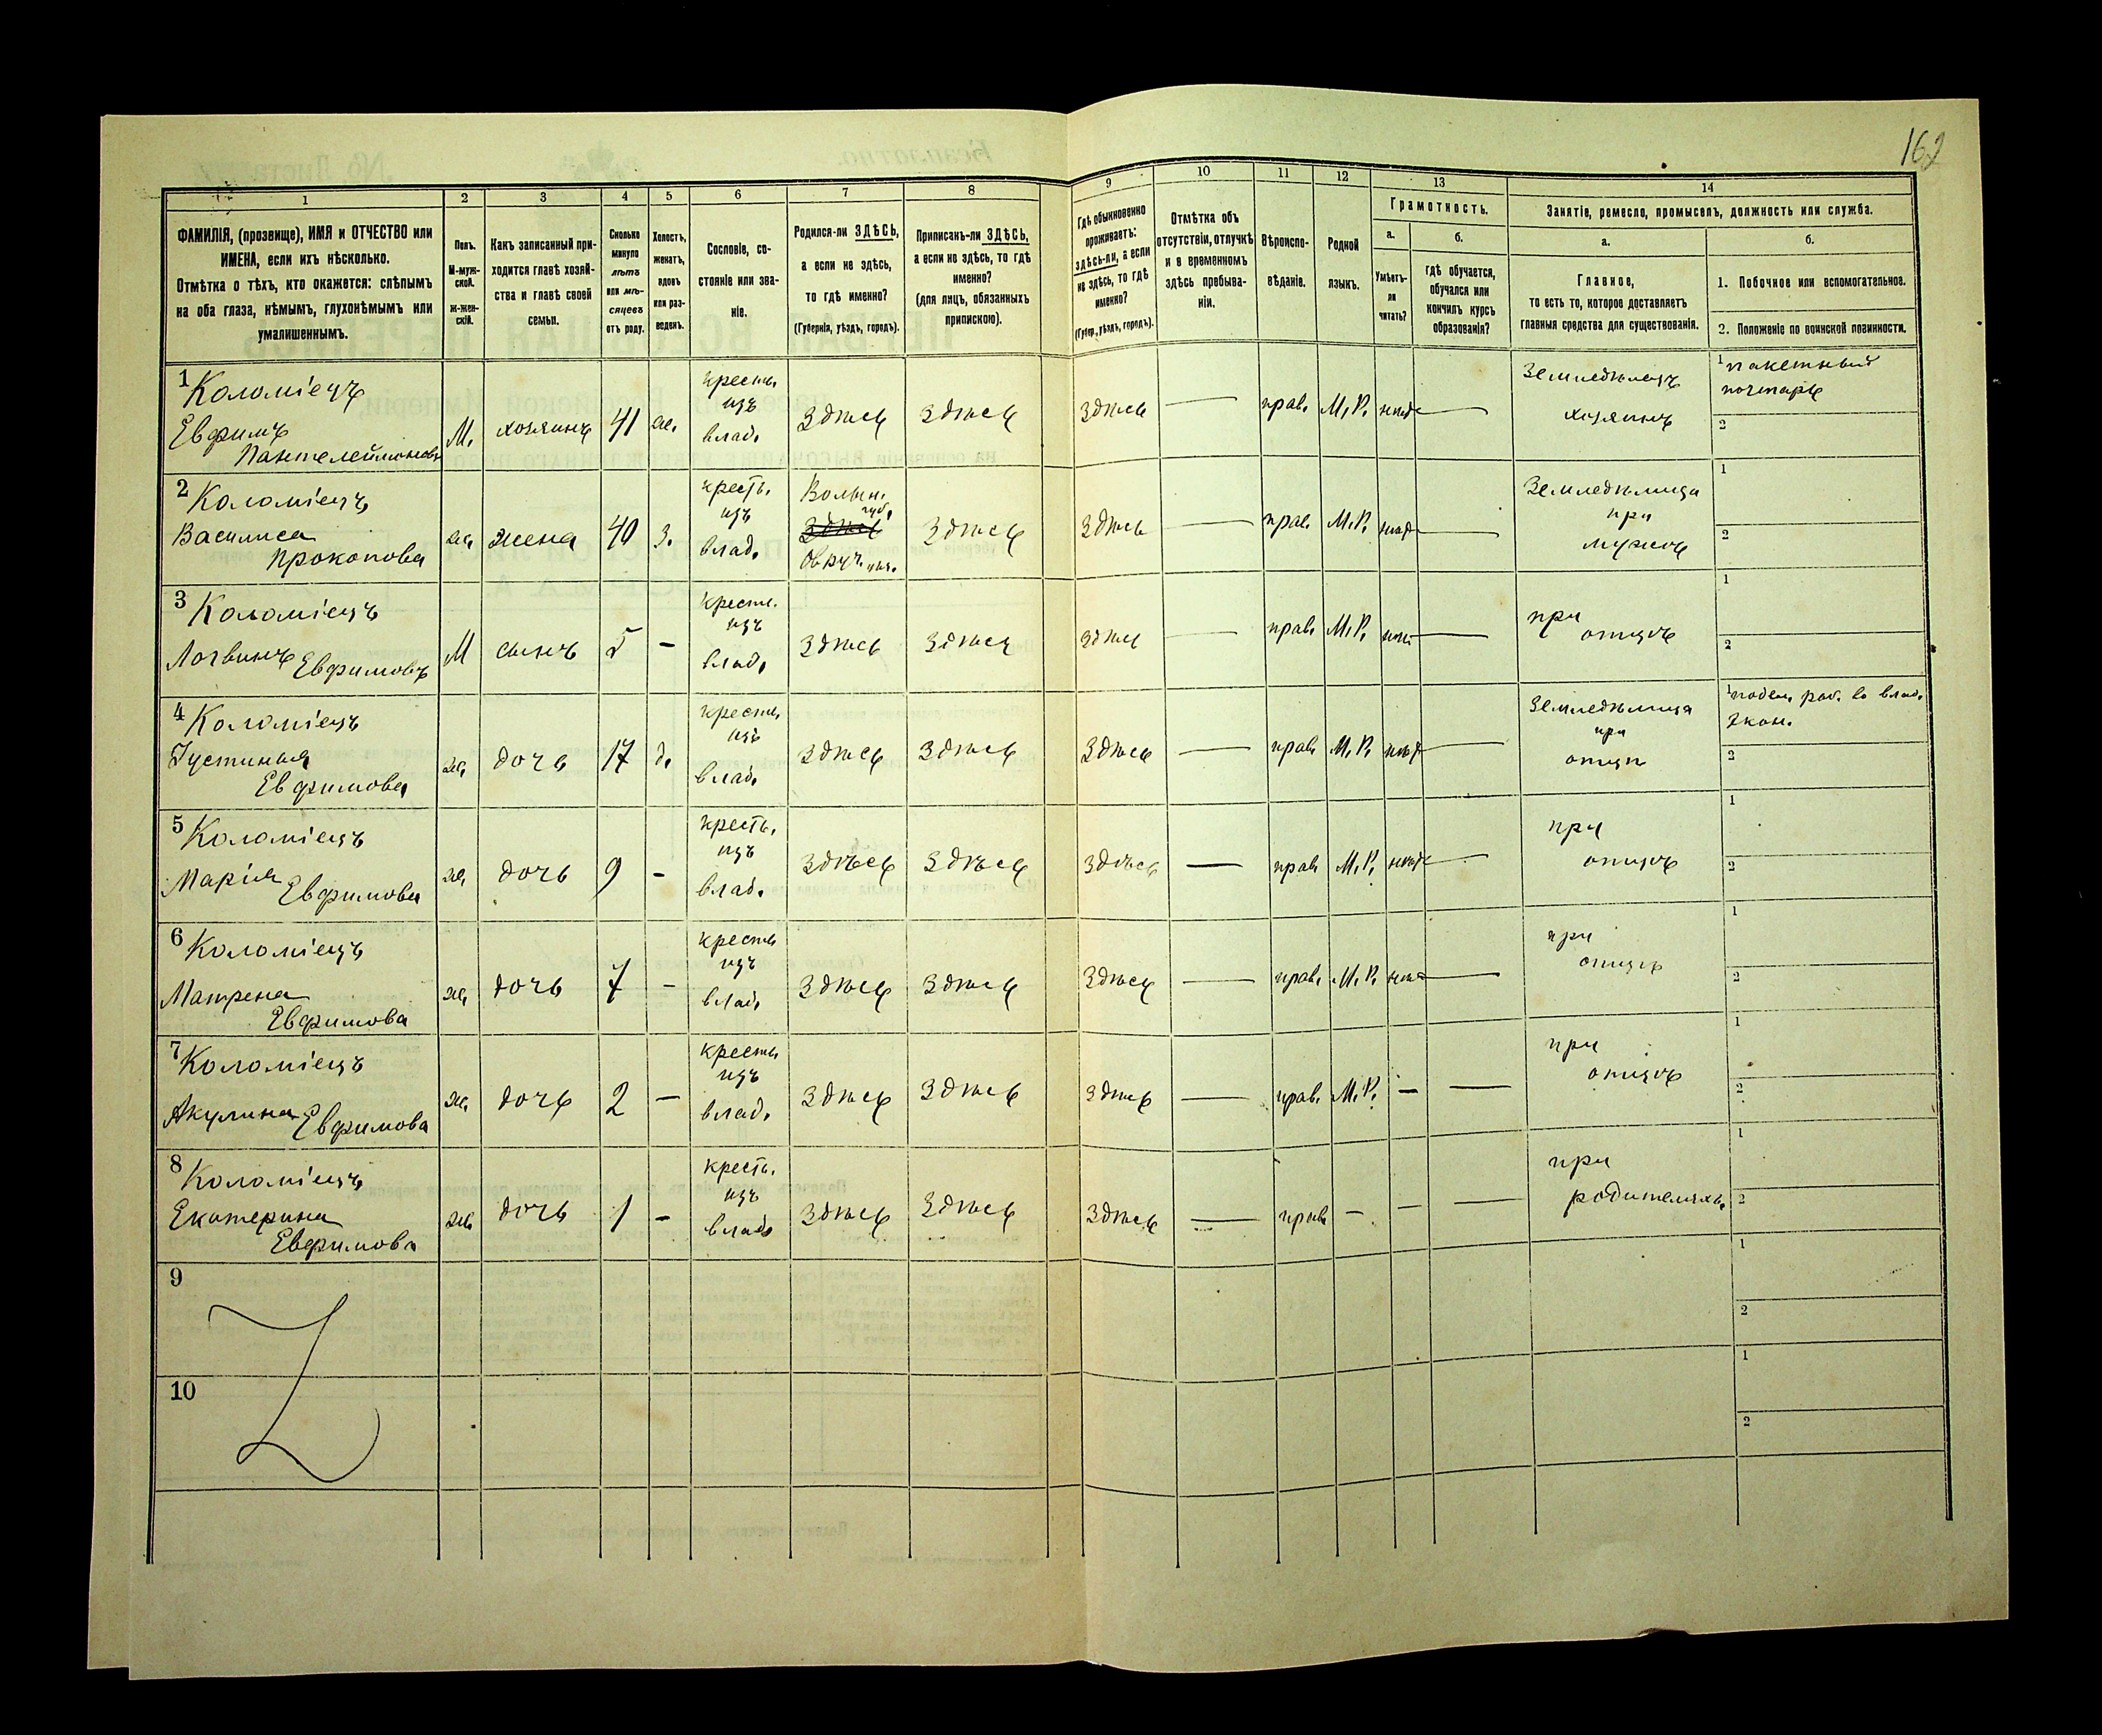 162
1 2 3 4 5 6 7 8 9 10 11 12 13 14
ФАМИЛІЯ, (прозвище), ИМЯ и ОТЧЕСТВО или
ИМЕНА, если ихъ нѣсколько.
Отмѣтка о тѣхъ, кто окажется: слѣпымъ
на оба глаза, нѣмымъ, глухонѣмымъ или
умалишеннымъ.
Полъ.
М-муж-
ской.
Ж-жен-
скій.
Какъ записанный при-
ходится главѣ хозяй-
ства и главѣ своей
семьи.
Сколько
минуло
лѣтъ
или мѣ-
сяцевъ
отъ роду.
Холостъ,
женатъ,
вдовъ
или раз-
веденъ.
Сословіе, со-
стояніе или зва-
ніе.
Родился-ли ЗДѢСЬ,
а если не здѣсь,
то гдѣ именно?
(Губернія, уѣздъ, городъ).
Приписанъ-ли ЗДѢСЬ,
а если не здѣсь, то гдѣ
именно?
(для лицъ, обязанныхъ
припискою).
Гдѣ обыкновенно
проживаетъ:
здѣсь-ли, а если
не здѣсь, то гдѣ
именно?
(Губер., уѣздъ, городъ).
Отмѣтка объ
отсутствіи, отлучкѣ
и о временномъ
здѣсь пребыва-
ніи.
Вѣроиспо-
вѣданіе.
Родной
языкъ.
Грамотность.
а.
Умѣетъ-
ли
читать?
б.
гдѣ обучается,
обучался или
кончилъ курсъ
образованія?
Занятіе, ремесло, промыселъ, должность или служба.
а.
Главное,
то есть то, которое доставляетъ
главныя средства для существованія.
б.
1. Побочное или вспомогательное.
2. Положеніе по воинской повинности.
1 Коломіецъ
Евфимъ
Пантелеймоновъ
М. хозяинъ 41 ж.
крест.
изъ
влад.
здѣсь здѣсь здѣсь — прав. М. Р. нѣтъ —
Земледѣлецъ
хозяинъ
1 пакетный
почтарь
2
2 Коломіецъ
Василиса
Прокопова
ж. жена 40 з.
крест.
изъ
влад.
Волын.
губ.
здѣсь
Овруч. уѣз.
здѣсь здѣсь — прав. М. Р. нѣтъ —
Земледѣлица
при
мужѣ
1
2
3 Коломіецъ
Логвинъ Евфимовъ
М сынъ 5 -
крест.
изъ
влад.
здѣсь здѣсь здѣсь — прав. М. Р. нѣтъ —
при
отцѣ
1
2
4 Коломіецъ
Іустинья
Евфимова
ж. дочь 17 д.
крест.
изъ
влад.
здѣсь здѣсь здѣсь — прав. М. Р. нѣтъ —
Земледѣлица
при
отцѣ
1 поден. раб. въ влад.
экон.
2
5 Коломіецъ
Марія Евфимова
ж. дочь 9 -
крест.
изъ
влад.
здѣсь здѣсь здѣсь — прав. М. Р. нѣтъ —
при
отцѣ
1
2
6 Коломіецъ
Матрена
Евфимова
ж. дочь 7 -
крест.
изъ
влад.
здѣсь здѣсь здѣсь — прав. М. Р. нѣтъ —
при
отцѣ
1
2
7 Коломіецъ
Акулина Евфимова
ж. дочь 2 -
крест.
изъ
влад.
здѣсь здѣсь здѣсь — прав. М. Р. - —
при
отцѣ
1
2
8 Коломіецъ
Екатерина
Евфимова
ж. дочь 1 -
крест.
изъ
влад.
здѣсь здѣсь здѣсь — прав. - - —
при
родителяхъ
1
2
9
1
2
10
1
2